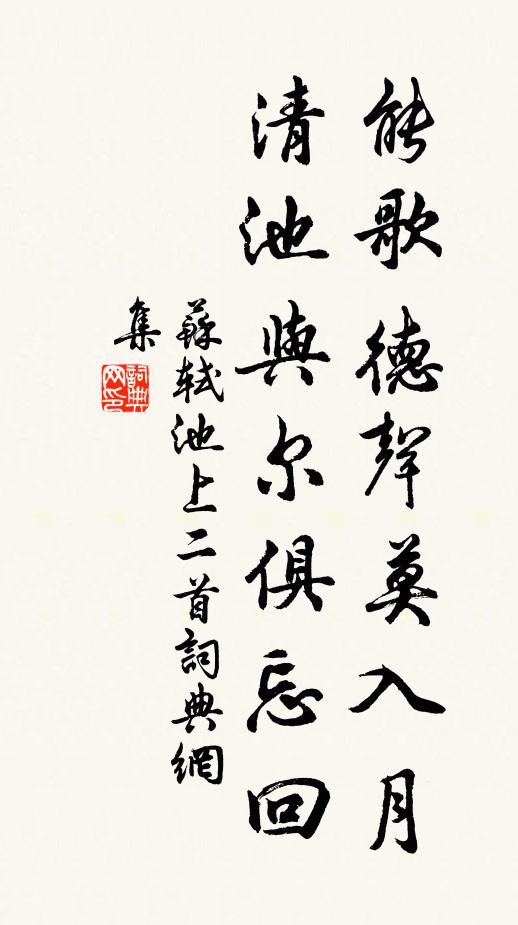 能歌德聲莫入月
清池與尔俱忘回
蘇軾池上二首詞典網
集
詞典
网印